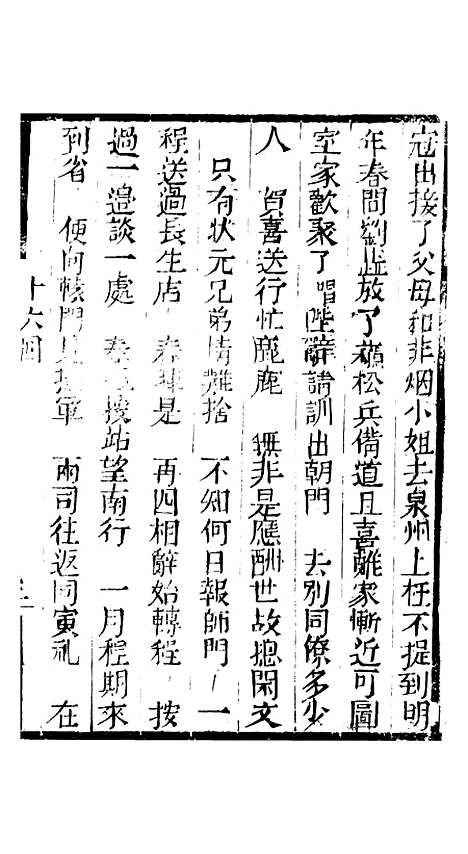 寇由接了父母和非烟小姐去泉州上任不提到明
年春間劉放了蘇松兵備道且喜離家漸近可圖
室家歡聚了唱陛辭請訓出朝門　去別同僚多少
人　賀喜送行忙鹿鹿　無非是應酬世故摠閑文
　只有狀元兄弟情難捨　不知何日報師門　一
程送過長生店　春暉是　再四相辭始轉程　按
過一邊談一處　春接站望南行　一月程期來
到省　便向轅門見撫軍　兩司往返同寅礼　在
十六回